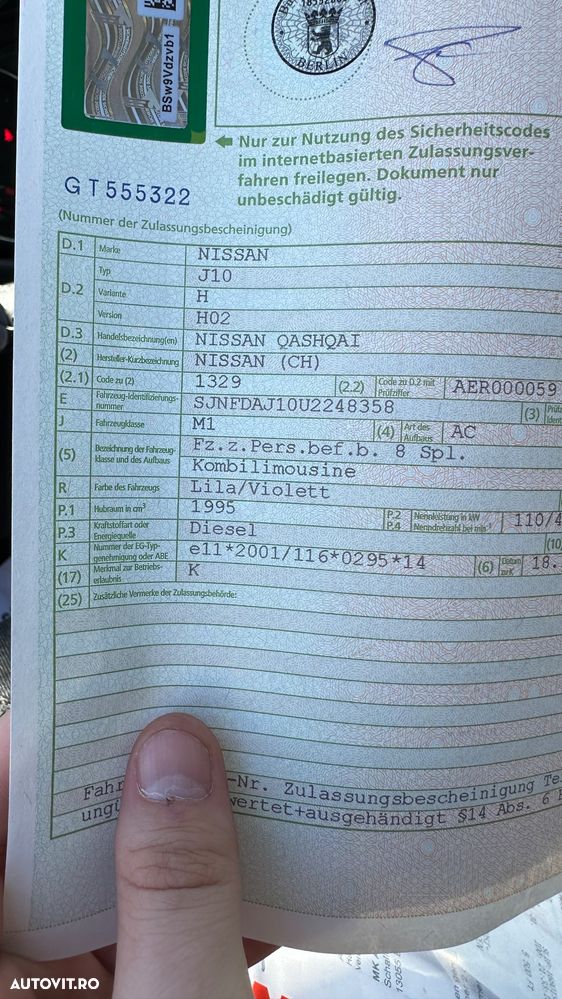 BSw9Vdzvb1
BERLIN
Nur zur Nutzung des Sicherheitscodes
im internetbasierten Zulassungsver-
fahren freilegen. Dokument nur
unbeschädigt gültig.
GT555322
(Nummer der Zulassungsbescheinigung)
D.1 Marke NISSAN
D.2 Typ J10
Variante H
Version H02
D.3 Handelsbezeichnung(en) NISSAN QASHQAI
(2) Hersteller-Kurzbezeichnung NISSAN (CH)
(2.1) Code zu (2) 1329 (2.2) Code zu D.2 mit Prüfziffer AER000059
E Fahrzeug-Identifizierungs-nummer SJNFDAJ10U2248358 (3)
J Fahrzeugklasse M1 (4) Art des Aufbaus AC
(5) Bezeichnung der Fahrzeug-klasse und des Aufbaus Fz.z.Pers.bef.b. 8 Spl.
Kombilimousine
R Farbe des Fahrzeugs Lila/Violett
P.1 Hubraum in cm³ 1995 P.2 P.4 Nennleistung in kW Nenndrehzahl bei min⁻¹ 110/4
P.3 Kraftstoffart oder Energiequelle Diesel (10
K Nummer der EG-Typ-genehmigung oder ABE e11*2001/116*0295*14 (6) Datum zu K 18.
(17) Merkmal zur Betriebs-erlaubnis K
(25) Zusätzliche Vermerke der Zulassungsbehörde:
Fahr -Nr. Zulassungsbescheinigung Te
ungü wertet+ausgehändigt §14 Abs. 6
AUTOVIT.RO